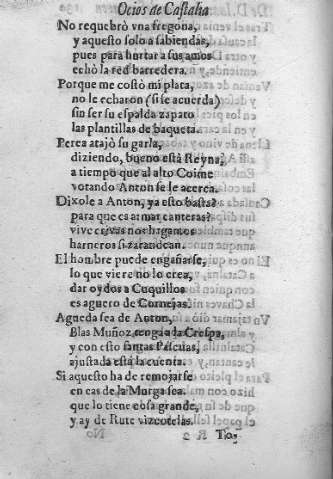 Ocios de Castalia
No requebrò vna fregona,
y aquesto solo a sabiendas,
pues para hurtar a sus amos
echò la red barredera.
Porque me costó mi plata,
no le echaron (si se acuerda)
sin ser su espalda zapato
las plantillas de baqueta.
Perea atajò su garla,
diziendo, bueno está Reyna,
a tiempo que al alto Coime
votando Anton se le acerca.
Dixole a Anton, ya esto basta?
para que es armar canteras?
vive no hagamos
harneros si zarandean.
El hombre puede engañarse,
lo que viere no lo crea,
dar oydos a Cuquillos
es aguero de Cornejas.
Agueda sea de Anton,
Blas Muñoz tenga a la Crespa,
y con esto santas Pascuas,
ajustada está la cuenta.
Si aquesto ha de remojarse
en cas de la Murga sea.
que lo tiene cosa grande,
y ay de Rute vizcotelas.